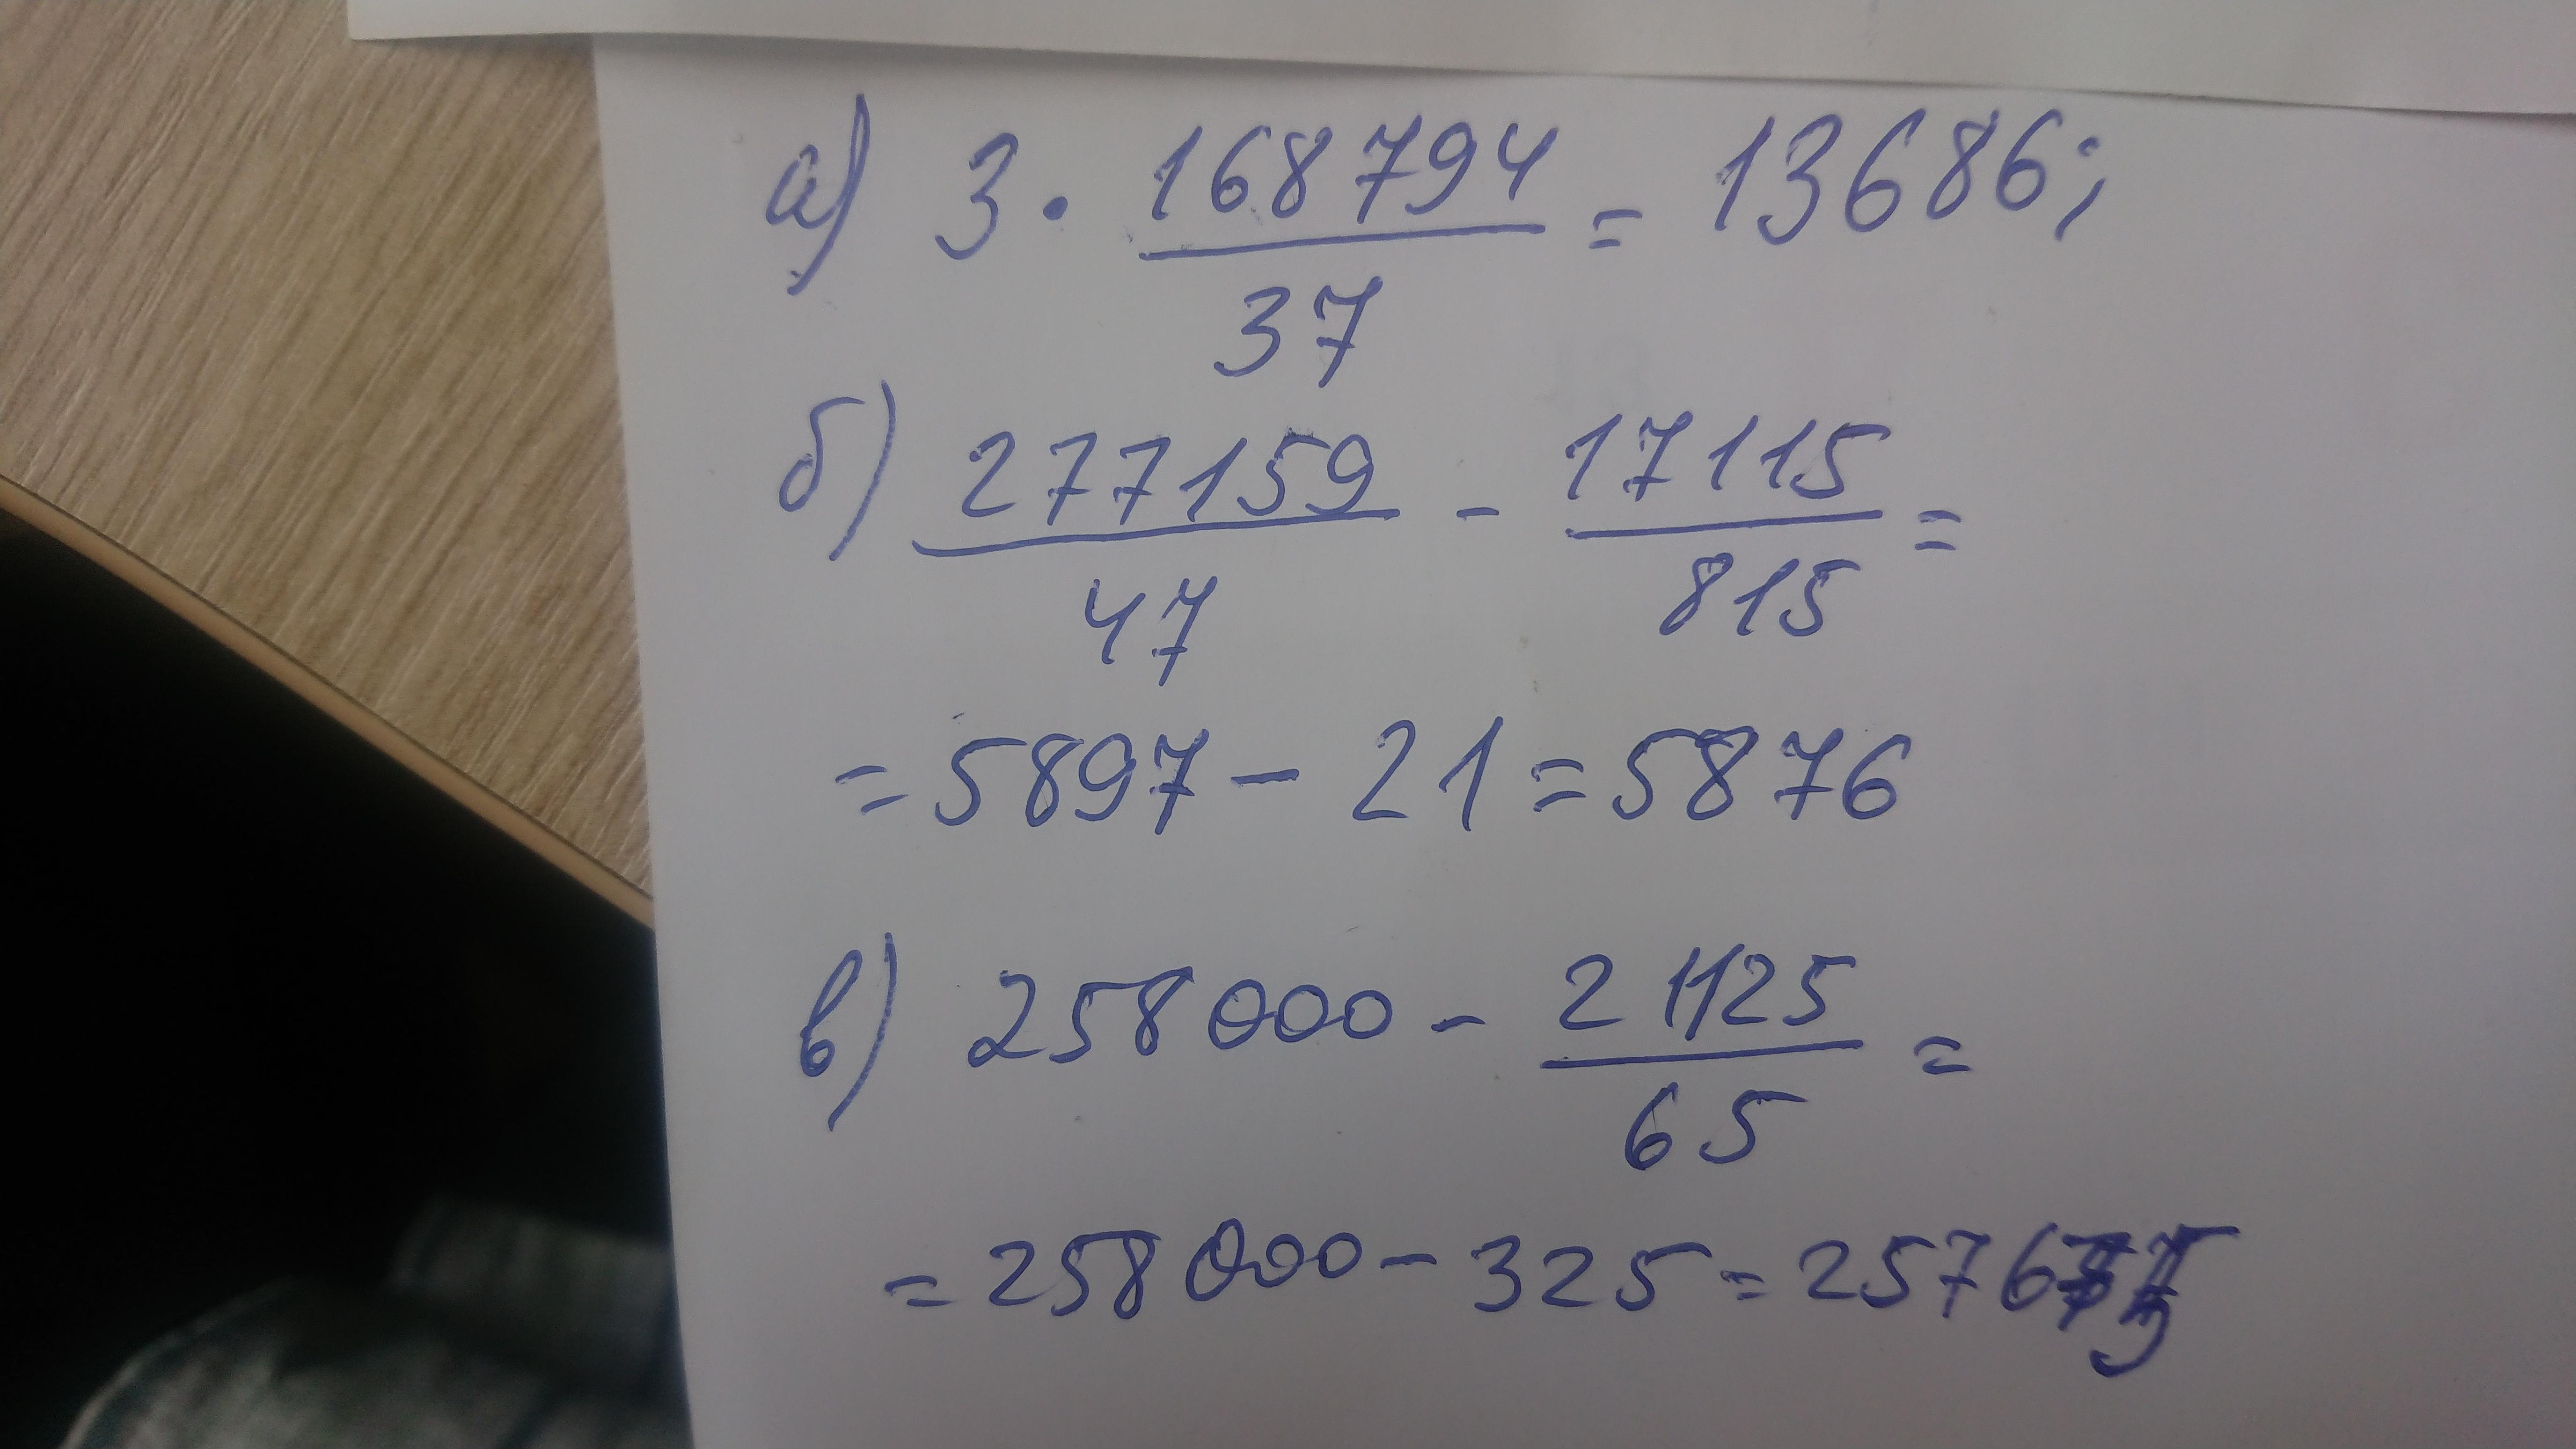 а) 3 · 168794/37 = 13686;
б) 277159/47 - 17115/815 =
= 5897 - 21 = 5876
в) 258000 - 21125/65 =
= 258000 - 325 = 257675